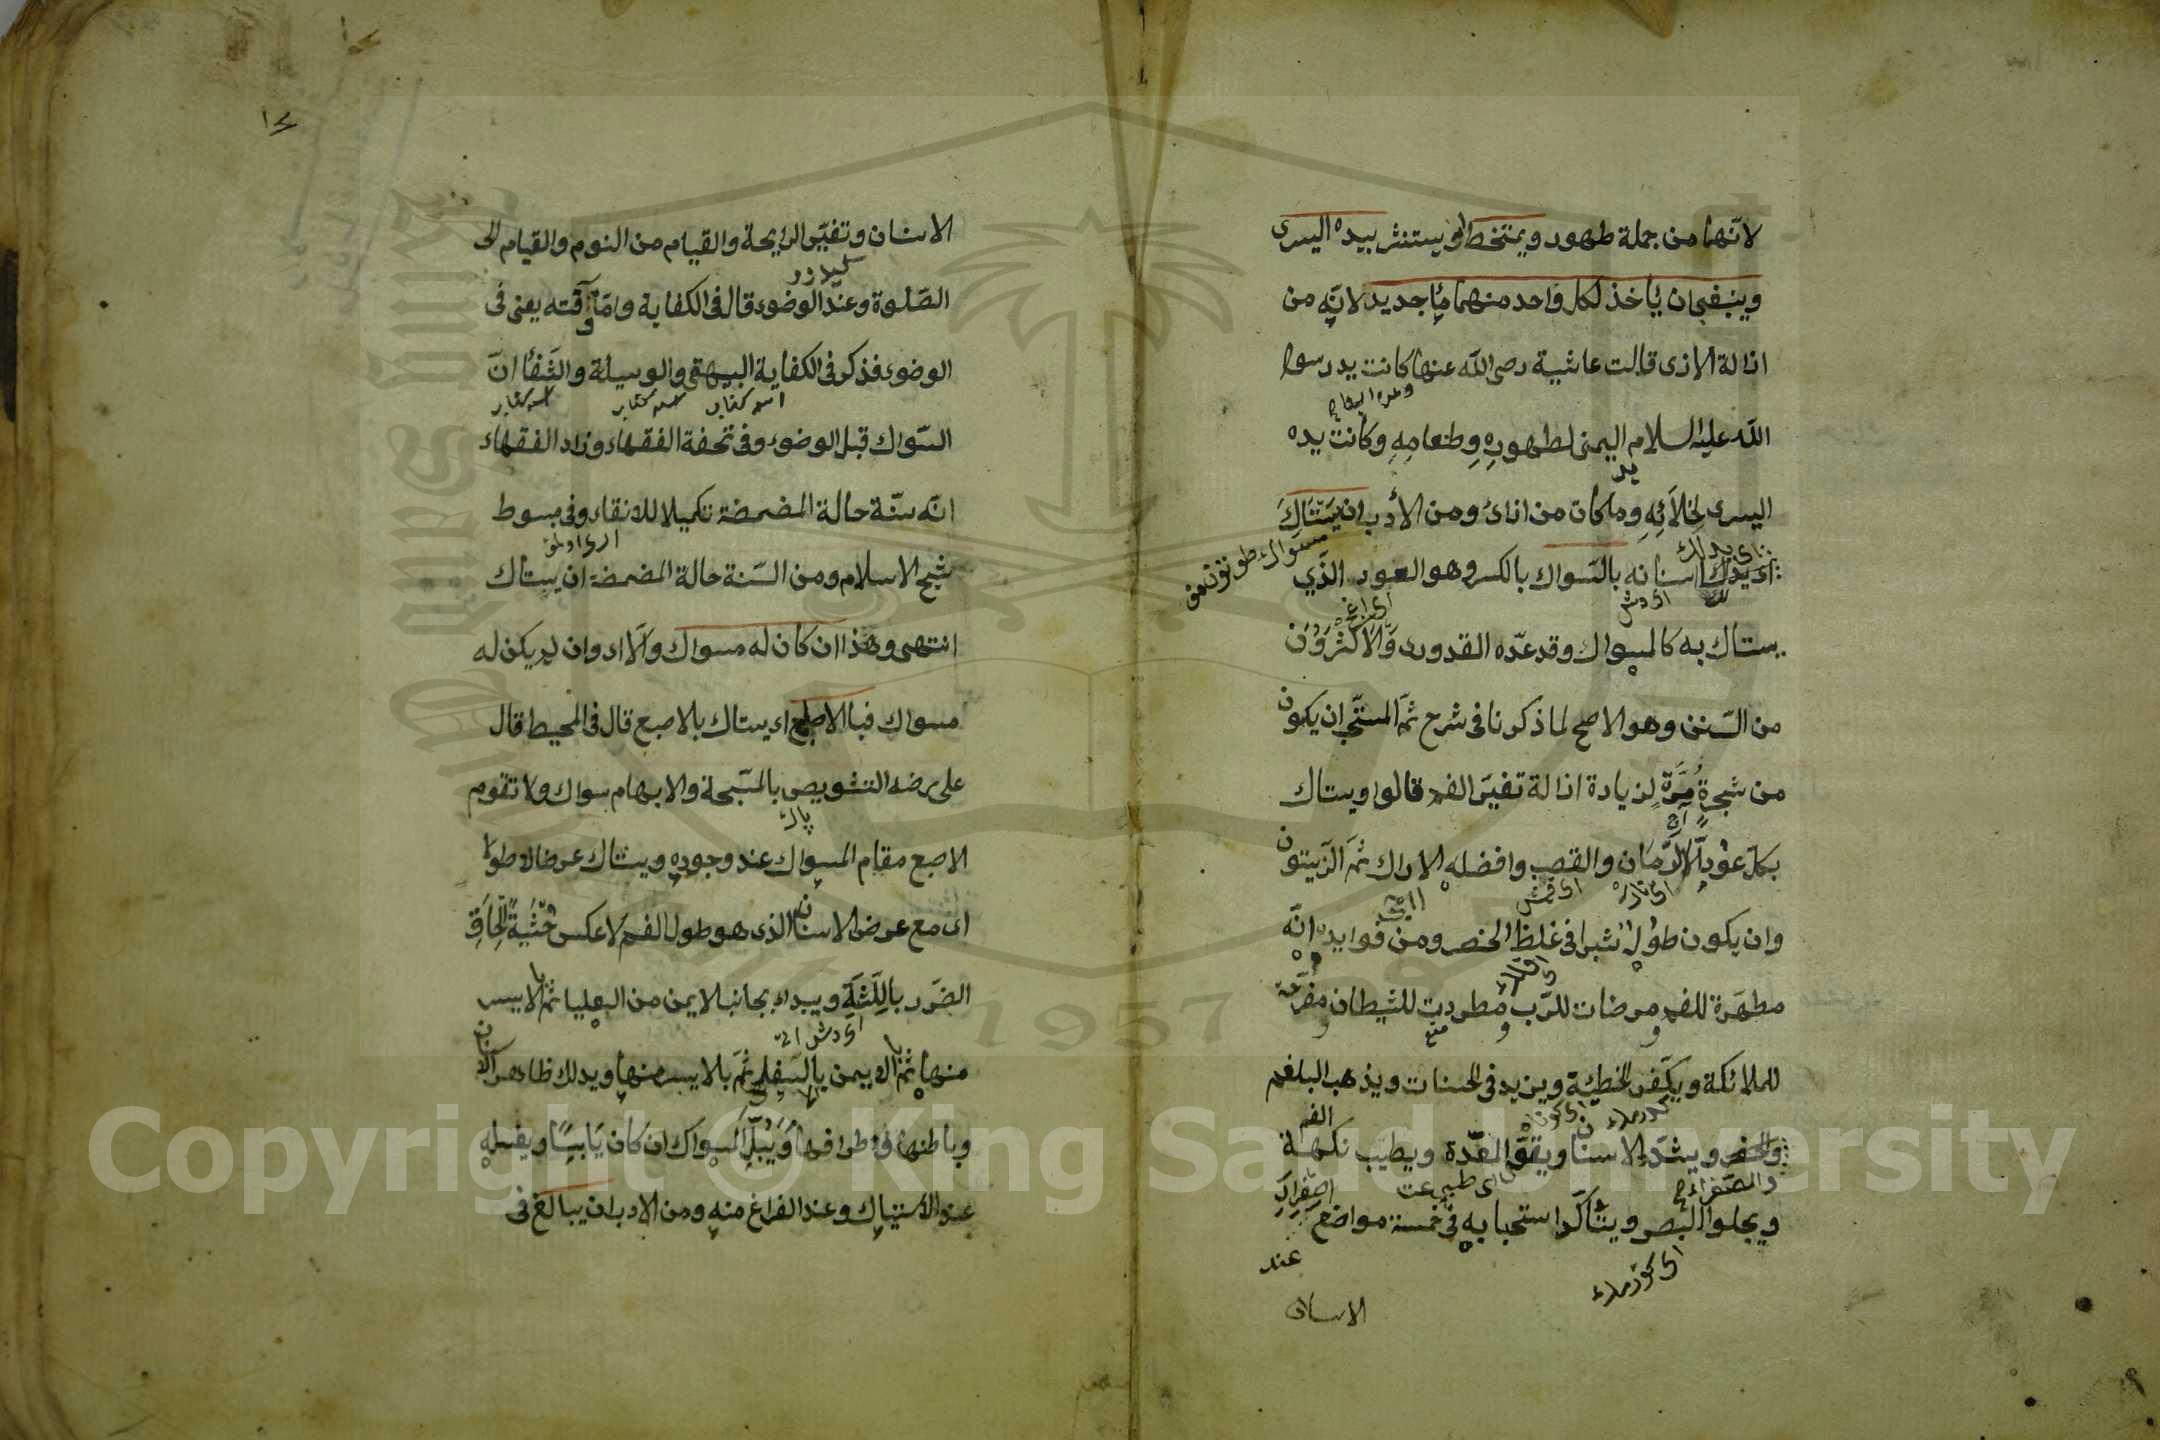 لانهما من جملة طهور ويمتخط اويستنثر بيده اليسرى
وينبغي ان يأخذ لكل واحد منهما مأ جديد لانه من
ازالة الاذى قالت عايشة رضى الله عنها كانت يد رسول
الله عليه السلام اليمنى لطهوره وطعامه وكانت يده
يد
اليسرى لخلائه وما كان من اذى ومن الأدب ان يستاك
اى يدلك اسنانه بالسواك بالكسر وهو العود الذي
اى يدلك
اى دش
يستاك به كالمسواك وقد عده القدورى والاكثرون
من السنن وهو الاصح لما ذكرنا فى شرح ثم المستحب ان يكون
من شجرة مرة لزيادة ازالة تغير الفم قالوا ويستاك
بكل عود الا الرمان والقصب وافضله الاراك ثم الزيتون
اى قمش
وان يكون طوله شبرا فى غلظ الخنصر ومن فوايده انه
مطهرة للفم ومرضات للرب ومطردت للشيطان ومفرحة
للملائكة ويكفر الخطيئة ويزيد فى الحسنات ويذهب البلغم
والحفر ويشد الاسنان ويقوى المعدة ويطيب نكهة
الفم
والصفراء
ويجلوا البصر ويتأكد استحبابه فى خمسة مواضع
عند
الاسنان
١٤
الاسنان وتغير الرايحة والقيام من النوم والقيام الى
الصلوة وعند الوضوء قال فى الكفاية واما وقته يعنى فى
الوضوء فذكر فى الكفاية البيهقى والوسيلة والشفأ ان
اسم كتاب اسم كتاب اسم كتاب
السواك قبل الوضوء وفى تحفة الفقهاء وزاد الفقهاء
انه سنة حالة المضمضة تكميلا للانقاء وفى مبسوط
شيخ الاسلام ومن السنة حالة المضمضة ان يستاك
انتهى وهذا ان كان له مسواك والا اى وان لم يكن له
مسواك فبالاصبع اى يستاك بالاصبع قال فى المحيط قال
على رضه التشويص بالمسبحة والابهام سواك ولا تقوم
پاك
الاصبع مقام المسواك عند وجوده ويستاك عرضا لا طولا
اى مع عرض الاسنان الذى هو طول الفم لا عكس خشية لحاق
الضرر باللثة ويبدء بجانب الايمن من العليا ثم بالايسر
منها ثم بالايمن بالسفلى ثم بالايسر منها ويدلك ظاهر الاسنان
وباطنها واطرافها ويبل المسواك ان كان يابسا ويغسله
عند الاستياك وعند الفراغ منه ومن الادب ان يبالغ فى
Copyright © King Saud University
1957